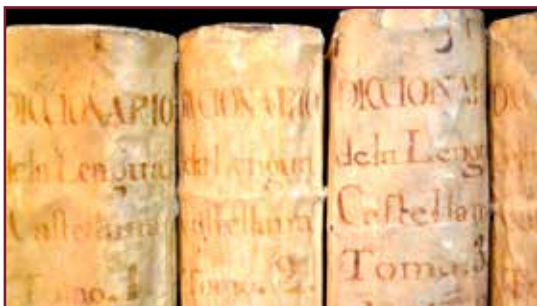 DICCIONARIO
dela Lengua
Castellana
Tomo. 1
DICCIONARIO
dela Lengua
Castellana
Tomo. 2.
DICCIONA
dela Leng
Castellan
Tomo. 3
DIC